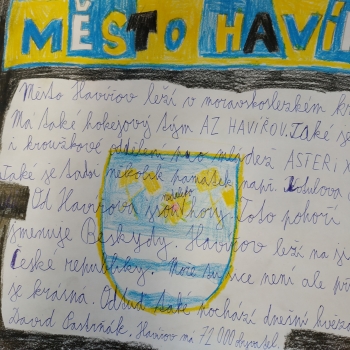 MĚSTO HAVÍ
Město Havířov leží v moravskoslezkém kr
Má také hokejový tým AZ HAVÍŘOV. Také se
i kroužkové oddělení pro mládež ASTERIX
Také se tady několik památek např. Kotulova
Od Havířova jsou hory. Toto pohoří
jmenuje Beskydy. Havířov leží na
České republiky. Moře tu sice není ale
je krásná. Odtud také pochází dnešní hvězd
David Pastrňák. Havířov má 72 000 obyvatel.
město